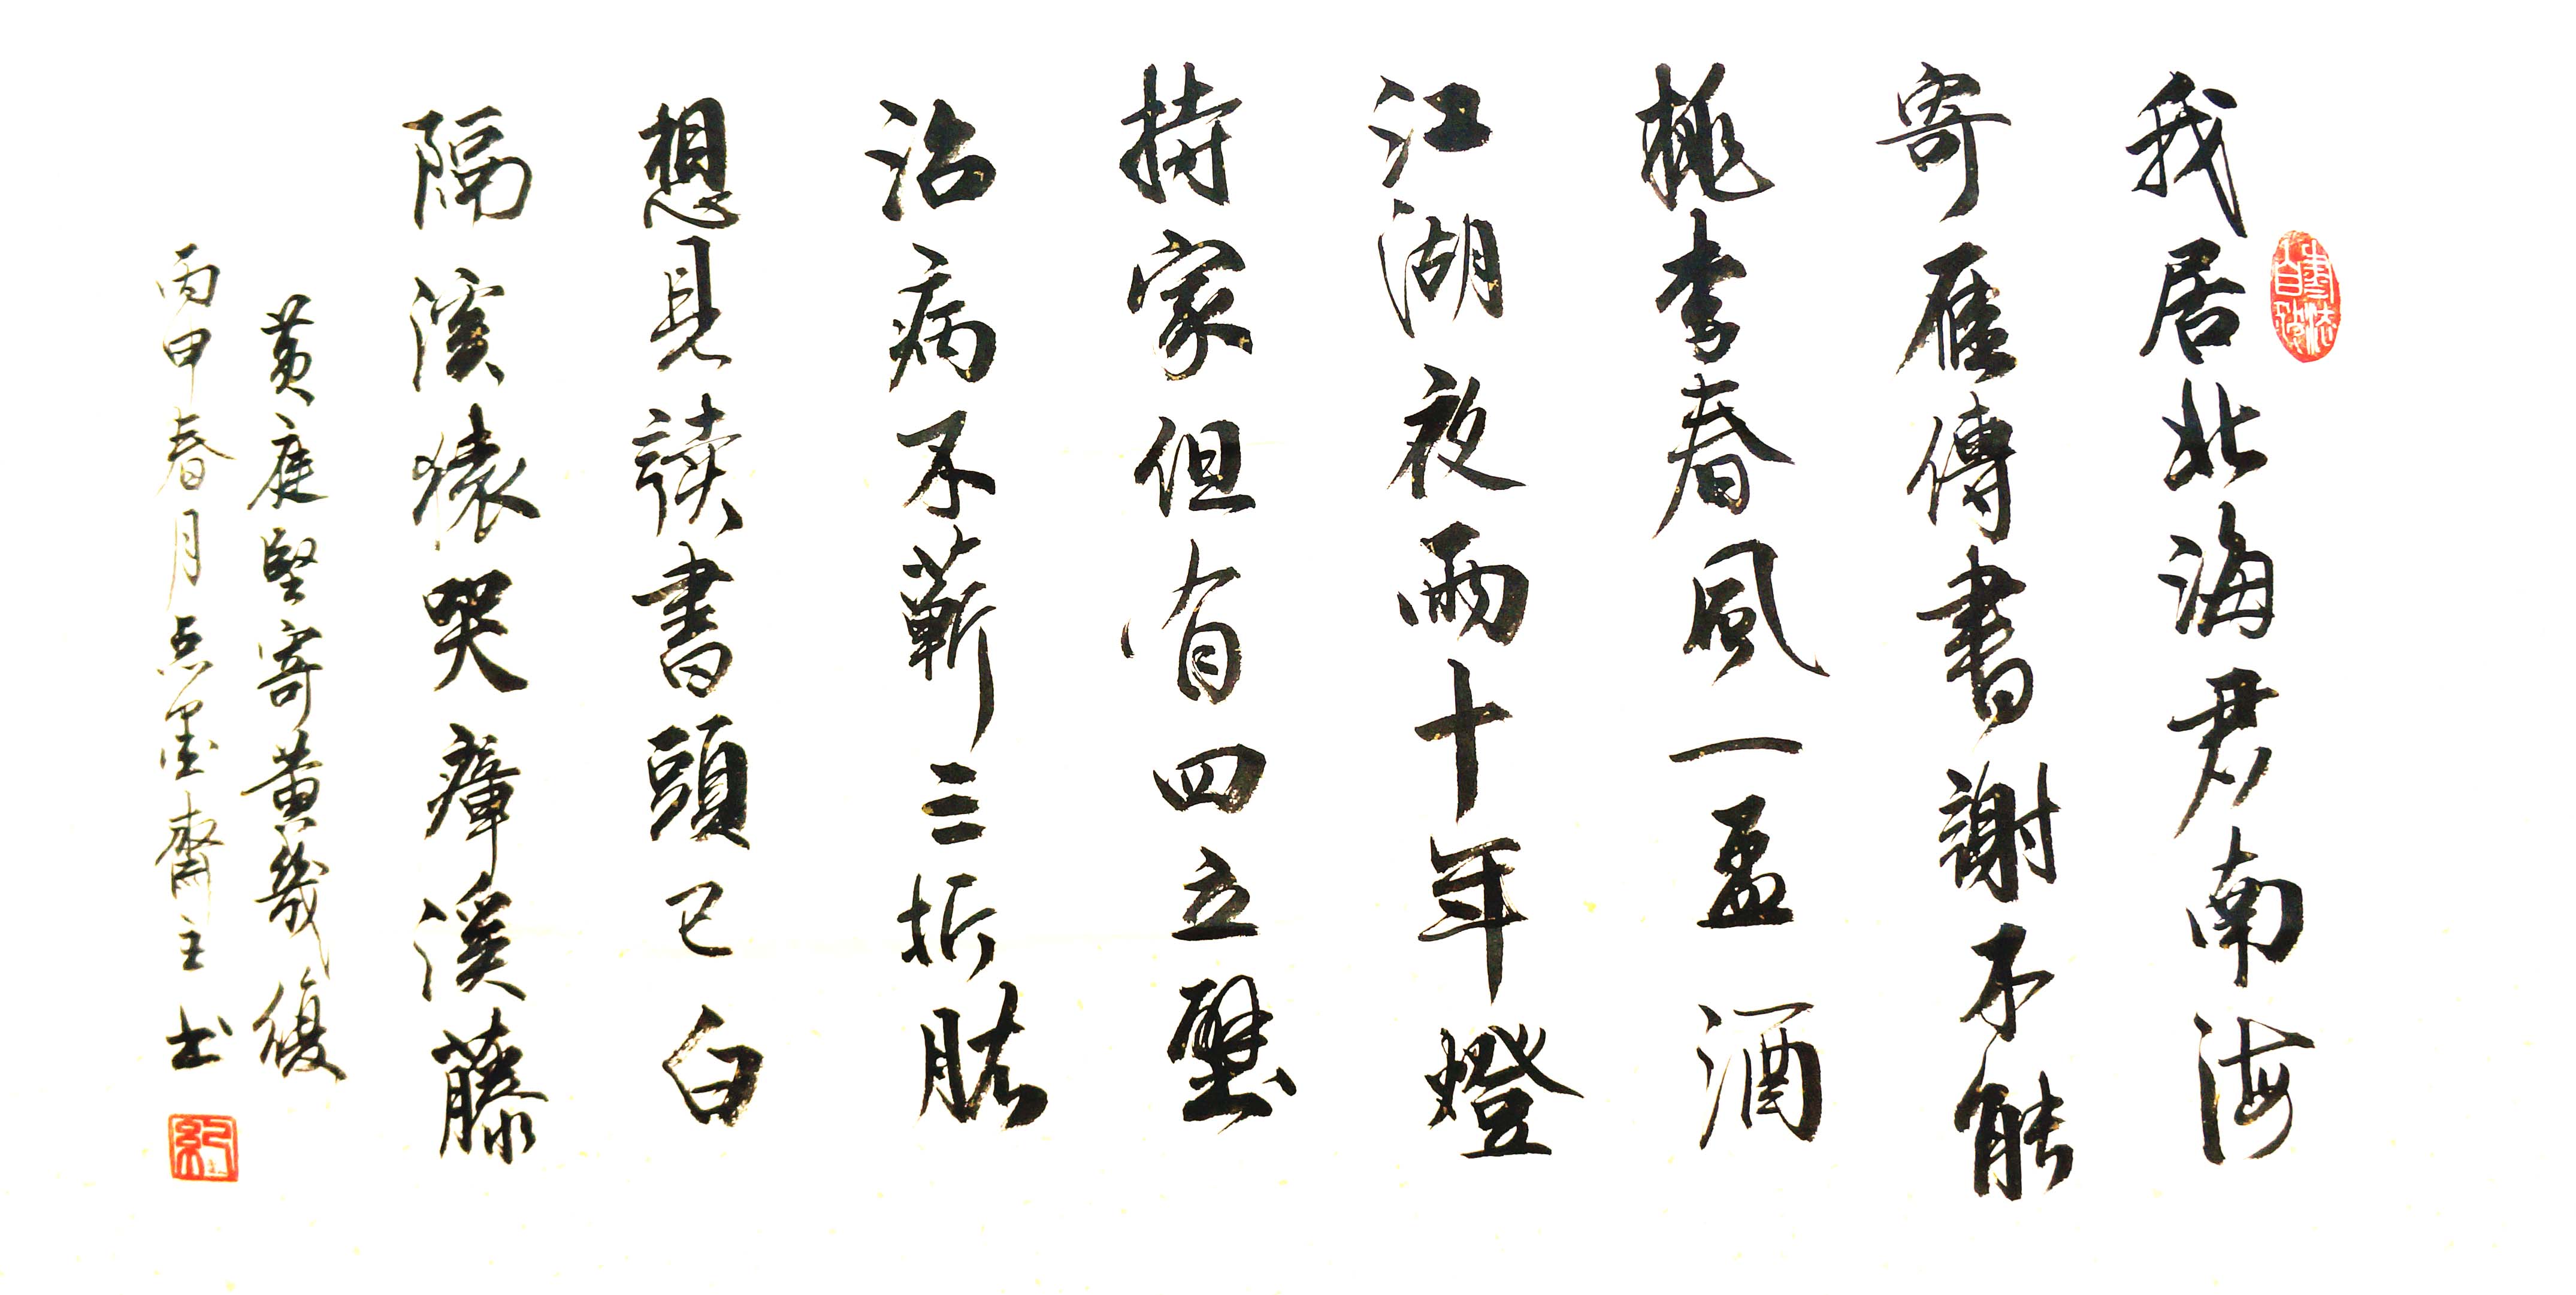 我居北海君南海
寄雁傳書謝不能
桃李春風一盃酒
江湖夜雨十年燈
持家但有四立壁
治病不蘄三折肱
想見讀書頭已白
隔溪猿哭瘴溪藤
黄庭堅寄黄幾復
丙申春月点墨齋主书